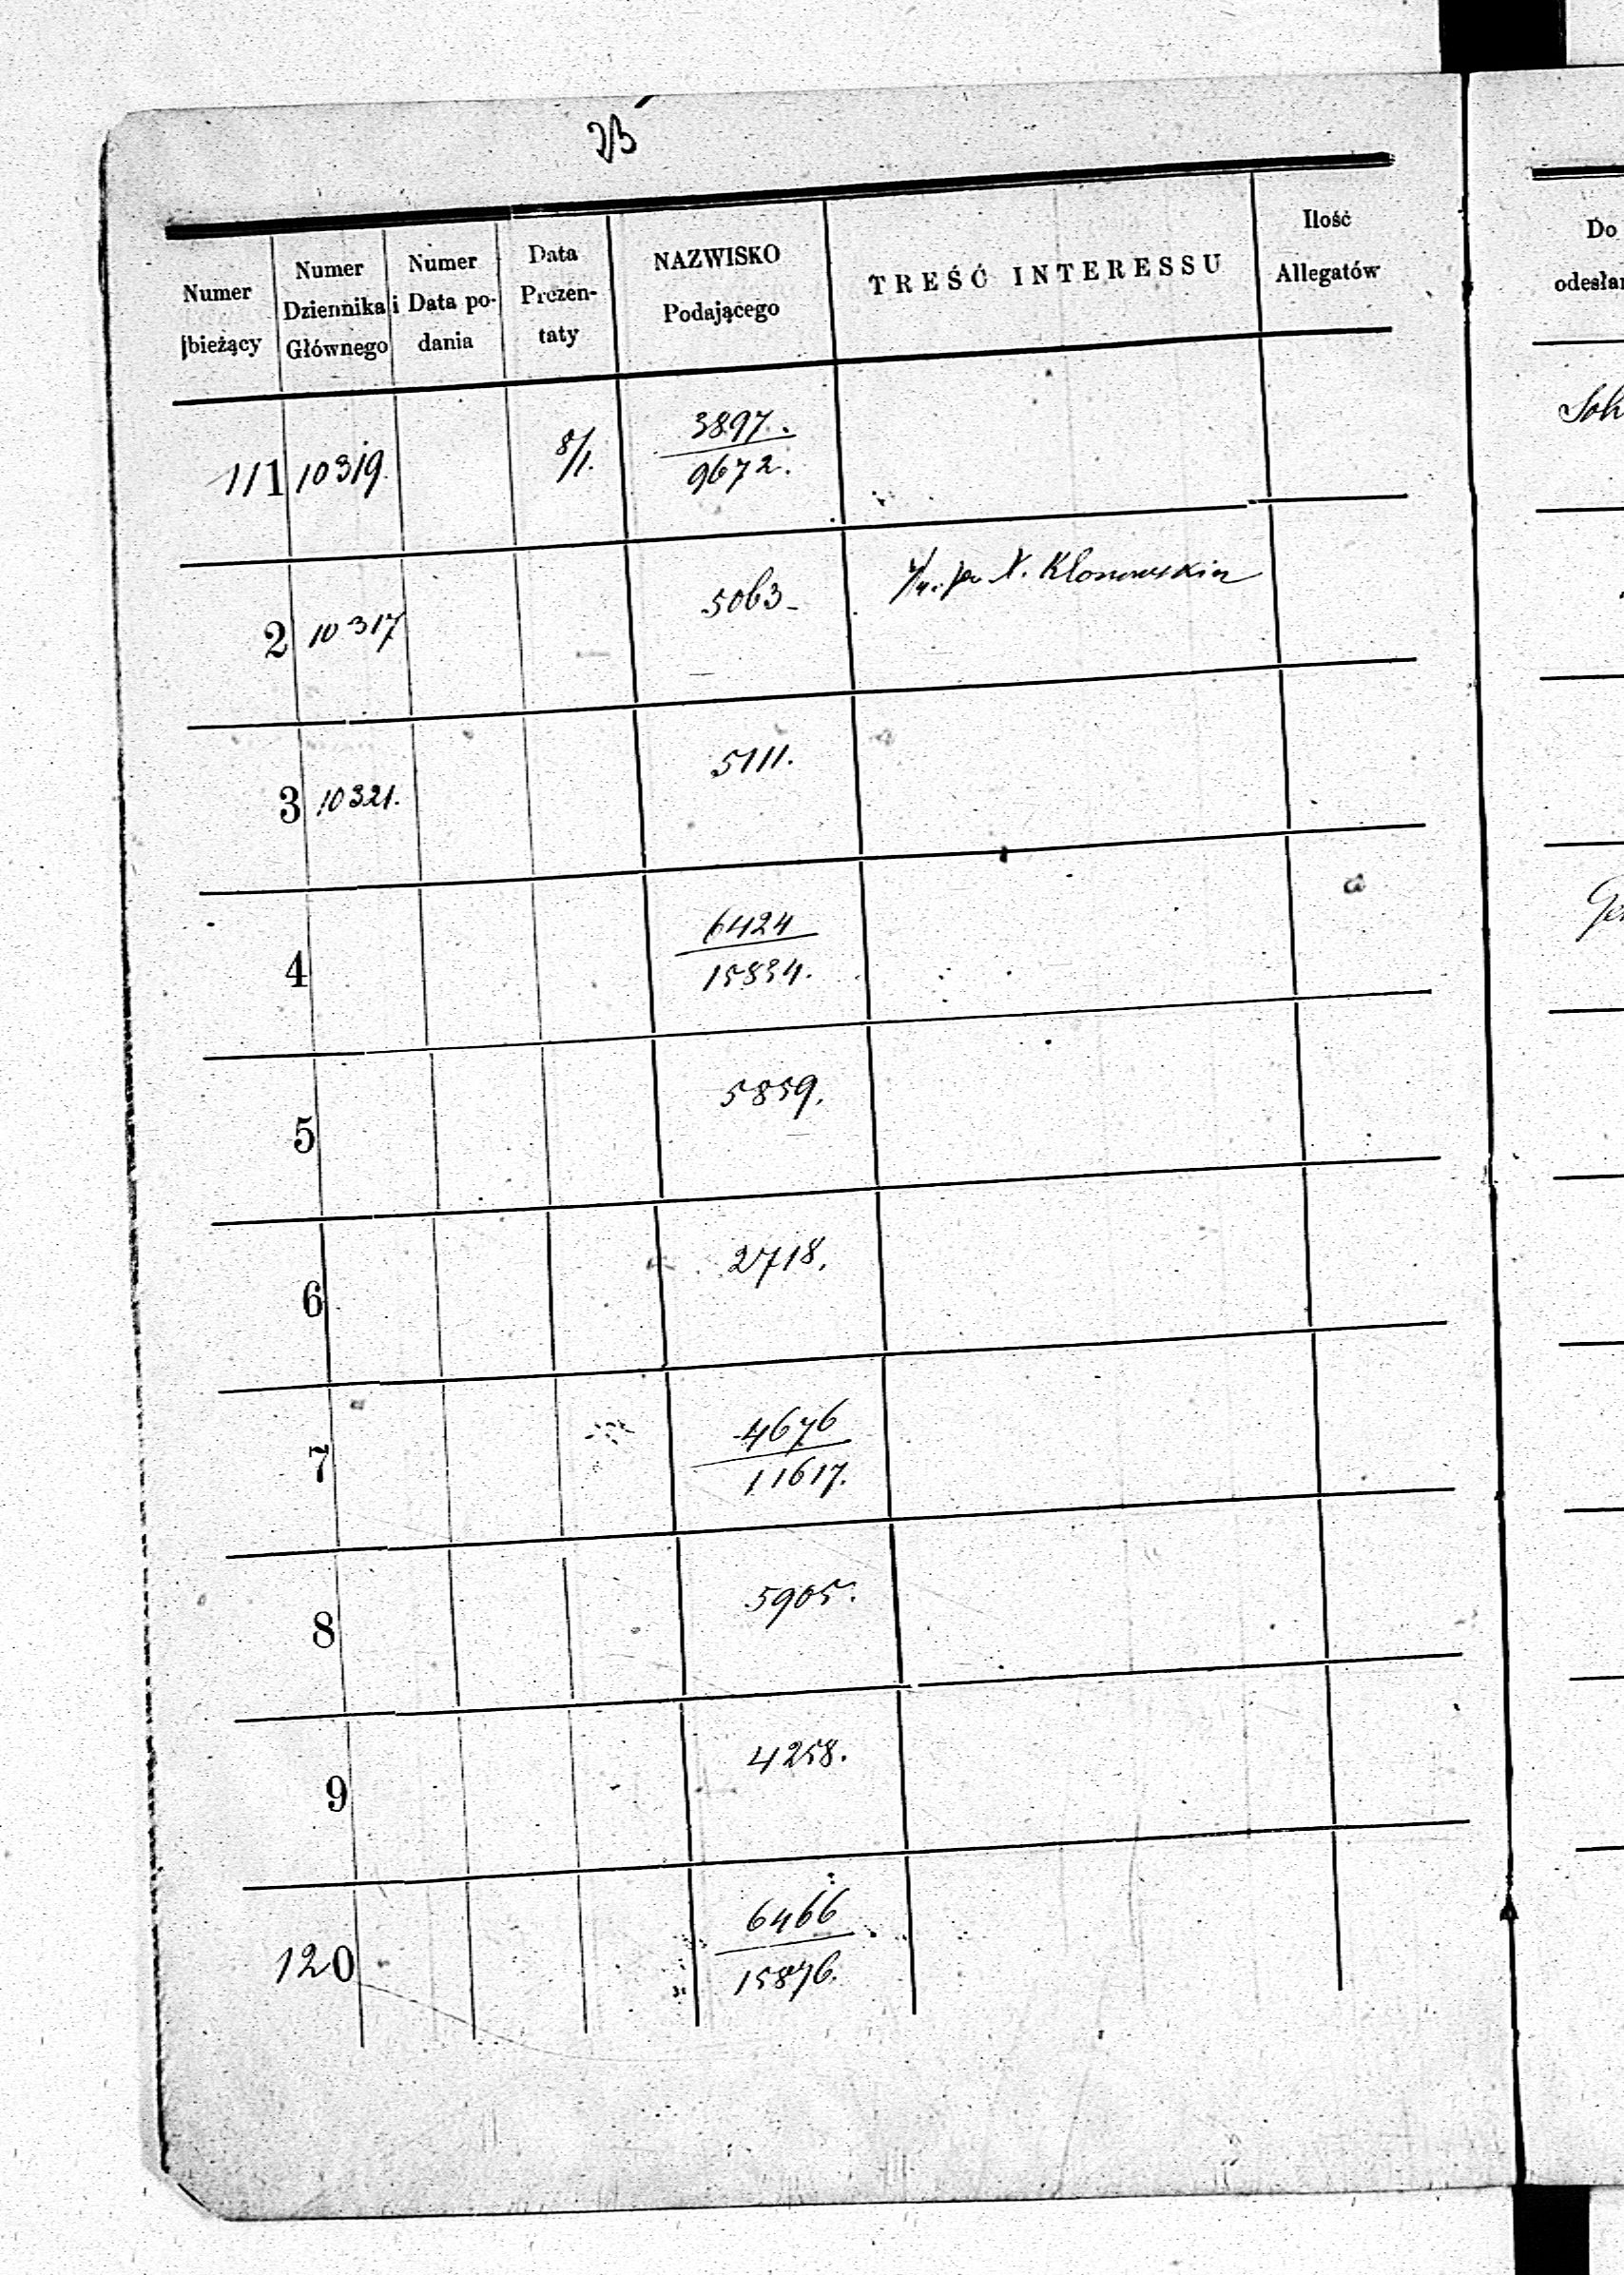 Numer bieżący
Numer Dziennika Głównego
Numer i Data podania
Data Prezentaty
NAZWISKO Podającego
TREŚĆ INTERESSU
Ilość Allegatów
Do
111 10319. 8/1. 3897.
9672.
2 10317 5063 X. Kłonowskim
3 10321. 5111.
4 6424
15834.
5 5859.
6 2718.
7 4676
11617.
8 5905.
9 4258.
120 6466
15876.